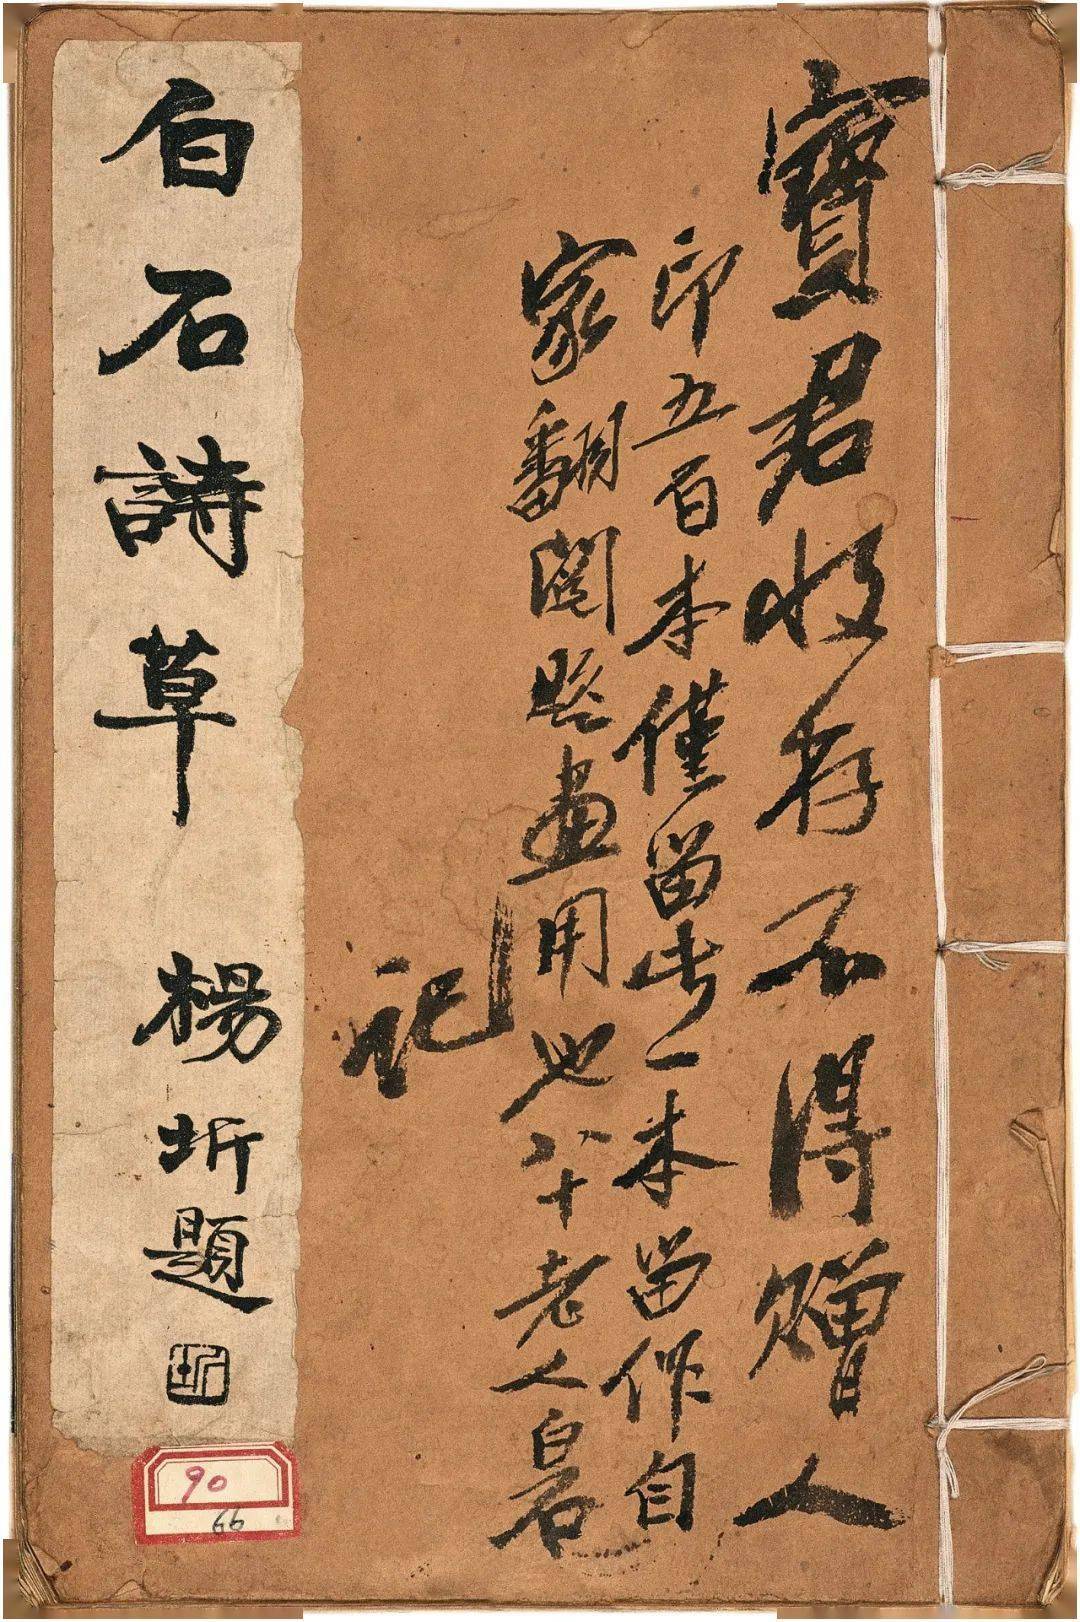 寶君收存不得贈人
印五百本僅留此一本留作自
家翻閱照畫用也八十老人白石
記
白石詩草 楊圻題
圻
90
66